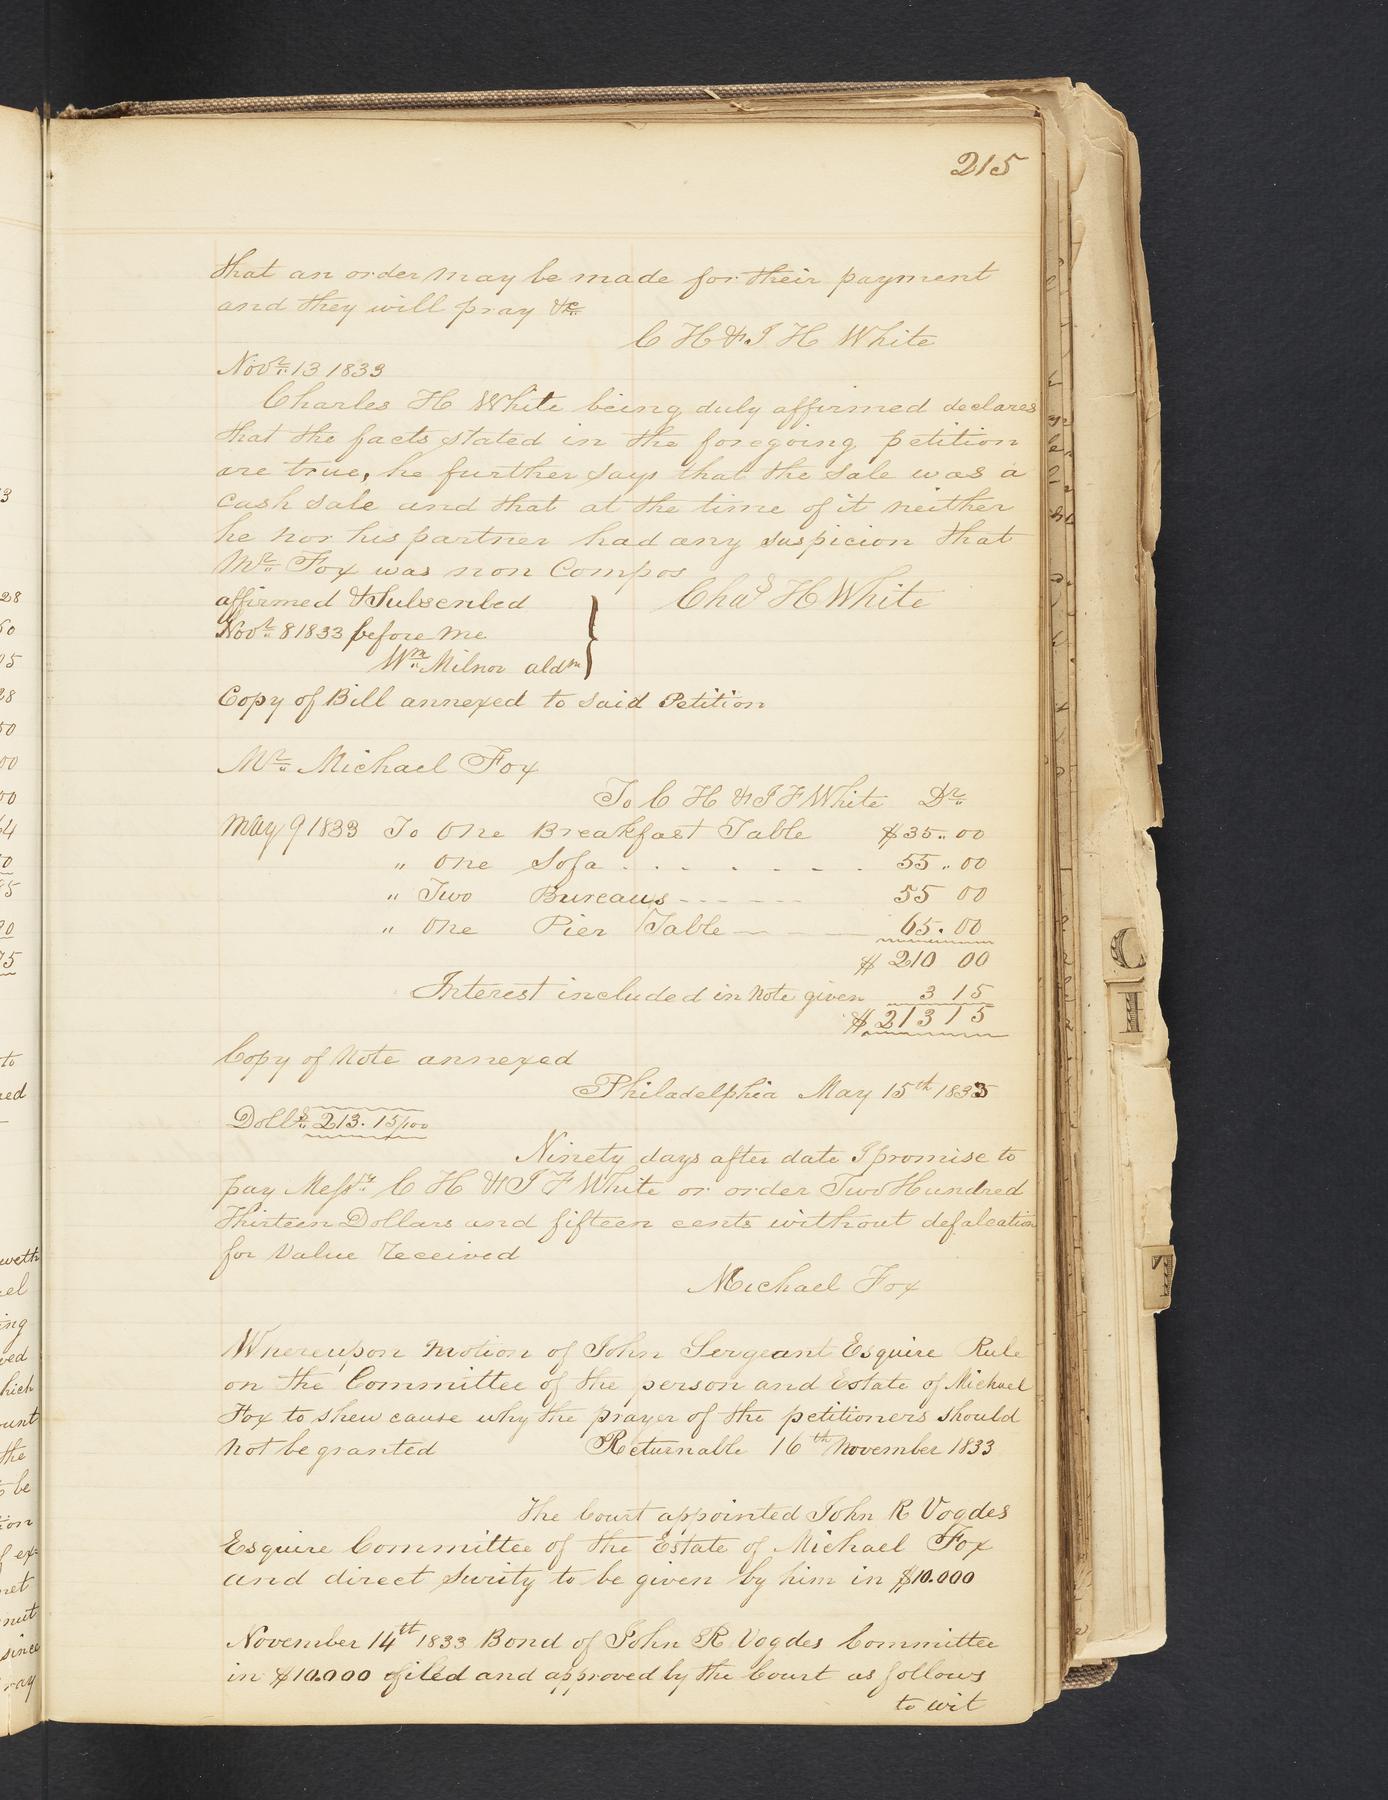 215
that an order may be made for their payment
and they will pray &c
C H & J H White
Novr 13 1833
Charles H White being duly affirmed declares
that the facts stated in the foregoing petition
are true, he further says that the sale was a
cash sale and that at the time of it neither
he nor his partner had any suspicion that
Mr Fox was non Compos
affirmed & Subscribed
Chas H White
Novr 8 1833 before me
Wm Milnor aldm
Copy of Bill annexed to said Petition
Mr Michael Fox
To C H & J F White Dr
May 9 1833 To One Breakfast Table $35..00
" One Sofa . . . . . . . 55..00
" Two Bureaus ------ 55 00
" One Pier Table ---- 65.00
$ 210 00
Interest included in Note given 3 15
$ 213 15
Copy of Note annexed
Philadelphia May 15th 1833
Dolls 213. 15/100
Ninety days after date I promise to
pay Messrs C H & J F White or order Two Hundred
Thirteen Dollars and fifteen cents without defalcation
for Value received
Michael Fox
Whereupon motion of John Sergeant Esquire Rule
on the Committee of the person and Estate of Michael
Fox to shew cause why the prayer of the petitioners should
not be granted Returnable 16th November 1833
The Court appointed John R Vogdes
Esquire Committee of the Estate of Michael Fox
and direct Surity to be given by him in $10.000
November 14th 1833 Bond of John R Vogdes Committee
in $10.000 filed and approved by the Court as follows
to wit